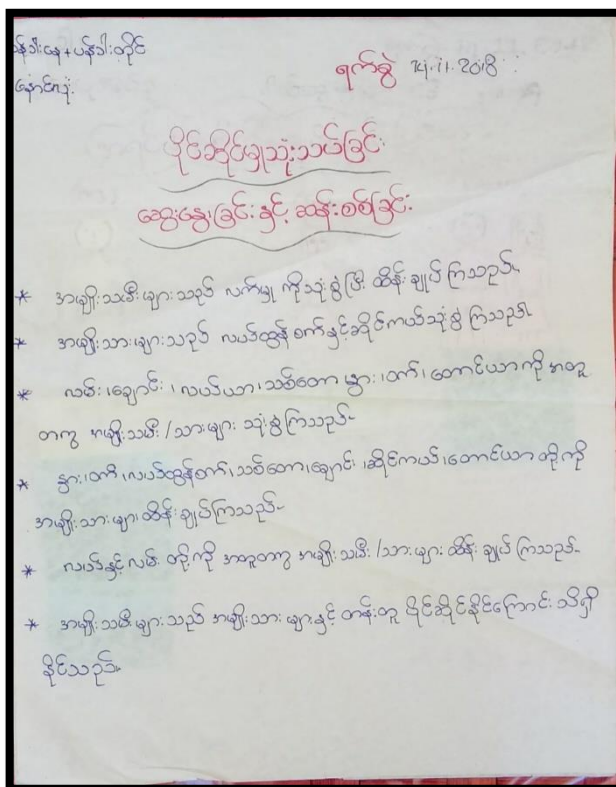 ပန်းခါးနေ+ပန်းခါးတိုင်
နောင်လုံး
ရက်စွဲ 14.11.2018
ပိုင်ဆိုင်မှုသုံးသပ်ခြင်း
ဆွေးနွေးခြင်းနှင့် ဆန်းစစ်ခြင်း
* အမျိုးသမီးများသည် လက်မှု ကိုသုံးစွဲပြီး ထိန်းချုပ်ကြသည်။
* အမျိုးသားများသည် လယ်ထွန်စက်နှင့်ဆိုင်ကယ်သုံးစွဲ ကြသည်။
* လမ်း၊ချောင်း၊လယ်ယာ၊သစ်တော၊နွား၊ဝက်၊တောင်ယာကို အတူ
တကွ အမျိုးသမီး/သားများ သုံးစွဲကြသည်။
* နွား၊ဝက်၊လယ်ထွန်စက်၊သစ်တော၊ချောင်း၊ဆိုင်ကယ်၊တောင်ယာ တို့ကို
အမျိုးသားများ ထိန်းချုပ်ကြသည်။
* လယ်နှင့်လမ်း တို့ကို အတူတကွ အမျိုးသမီး/သားများ ထိန်းချုပ်ကြသည်။
* အမျိုးသမီးများသည် အမျိုးသားများနှင့် တန်းတူ ပိုင်ဆိုင်နိုင်ကြောင်း သိရှိ
နိုင်သည်။